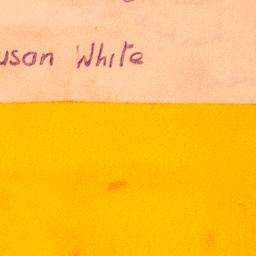 usan White